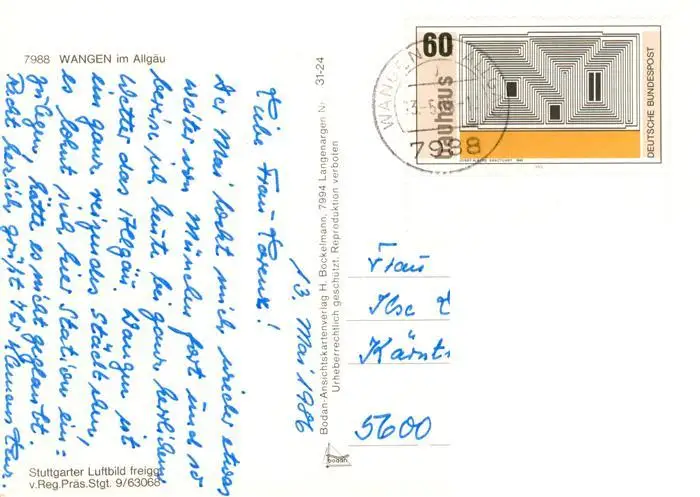 7988 WANGEN im Allgäu
13. Mai 1986
Liebe Frau
Der Mai lockt mich wieder etwas
weiter von München fort und so
bereise ich heute bei ganz herrlichem
Wetter das Allgäu. Wangen ist
ein ganz reizendes Städtchen,
es lohnt sich hier Station ein=
zulegen, hätte es nicht geglaubt.
Recht herzlich grüßt Ihr Klemens
Stuttgarter Luftbild freigg.
v.Reg.Präs.Stgt. 9/63068
Bodan-Ansichtskartenverlag H. Bockelmann, 7994 Langenargen Nr 31-24
Urheberrechtlich geschützt. Reproduktion verboten
bodan
60
bauhaus
DEUTSCHE BUNDESPOST
JOSEF ALBERS SANCTUARY 1942
WANGEN
7988
Frau
Ilse
Kärnt
5600